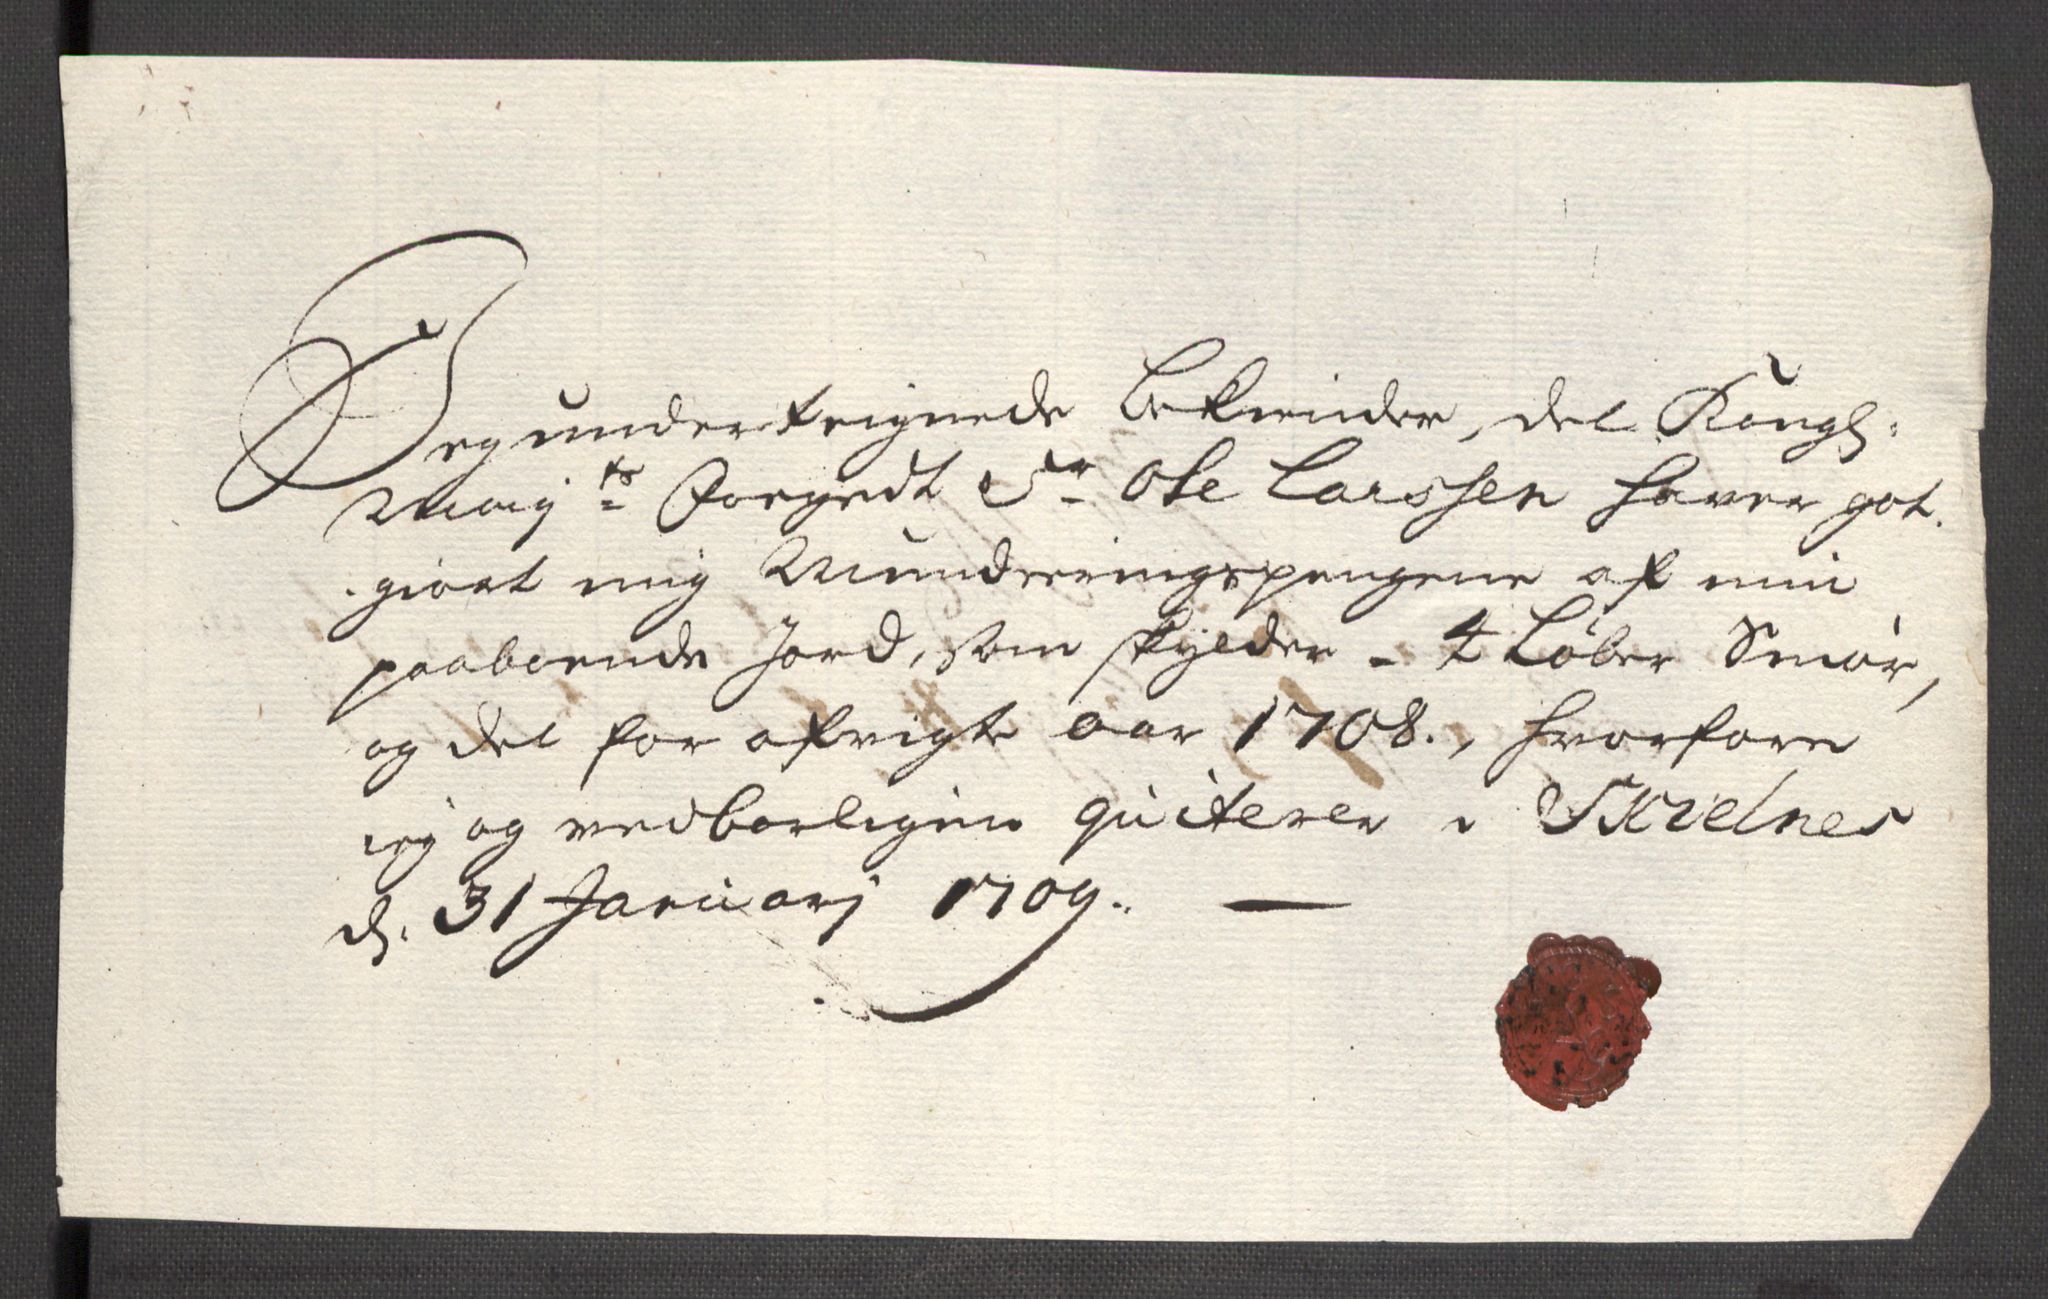 Jeg underteignede bekiender, del Kongl:
Maij:ts Foegedt Sr Ole Larssen hafver got
giort mig Munderingspengene af min
paaboende Jord, som skylder - 4 Løber Smør,
og del for afvigte aar 1708., hvorfore
ieg og vedbørligen quiterer. Skielnes
d. 31 Januarj 1709.